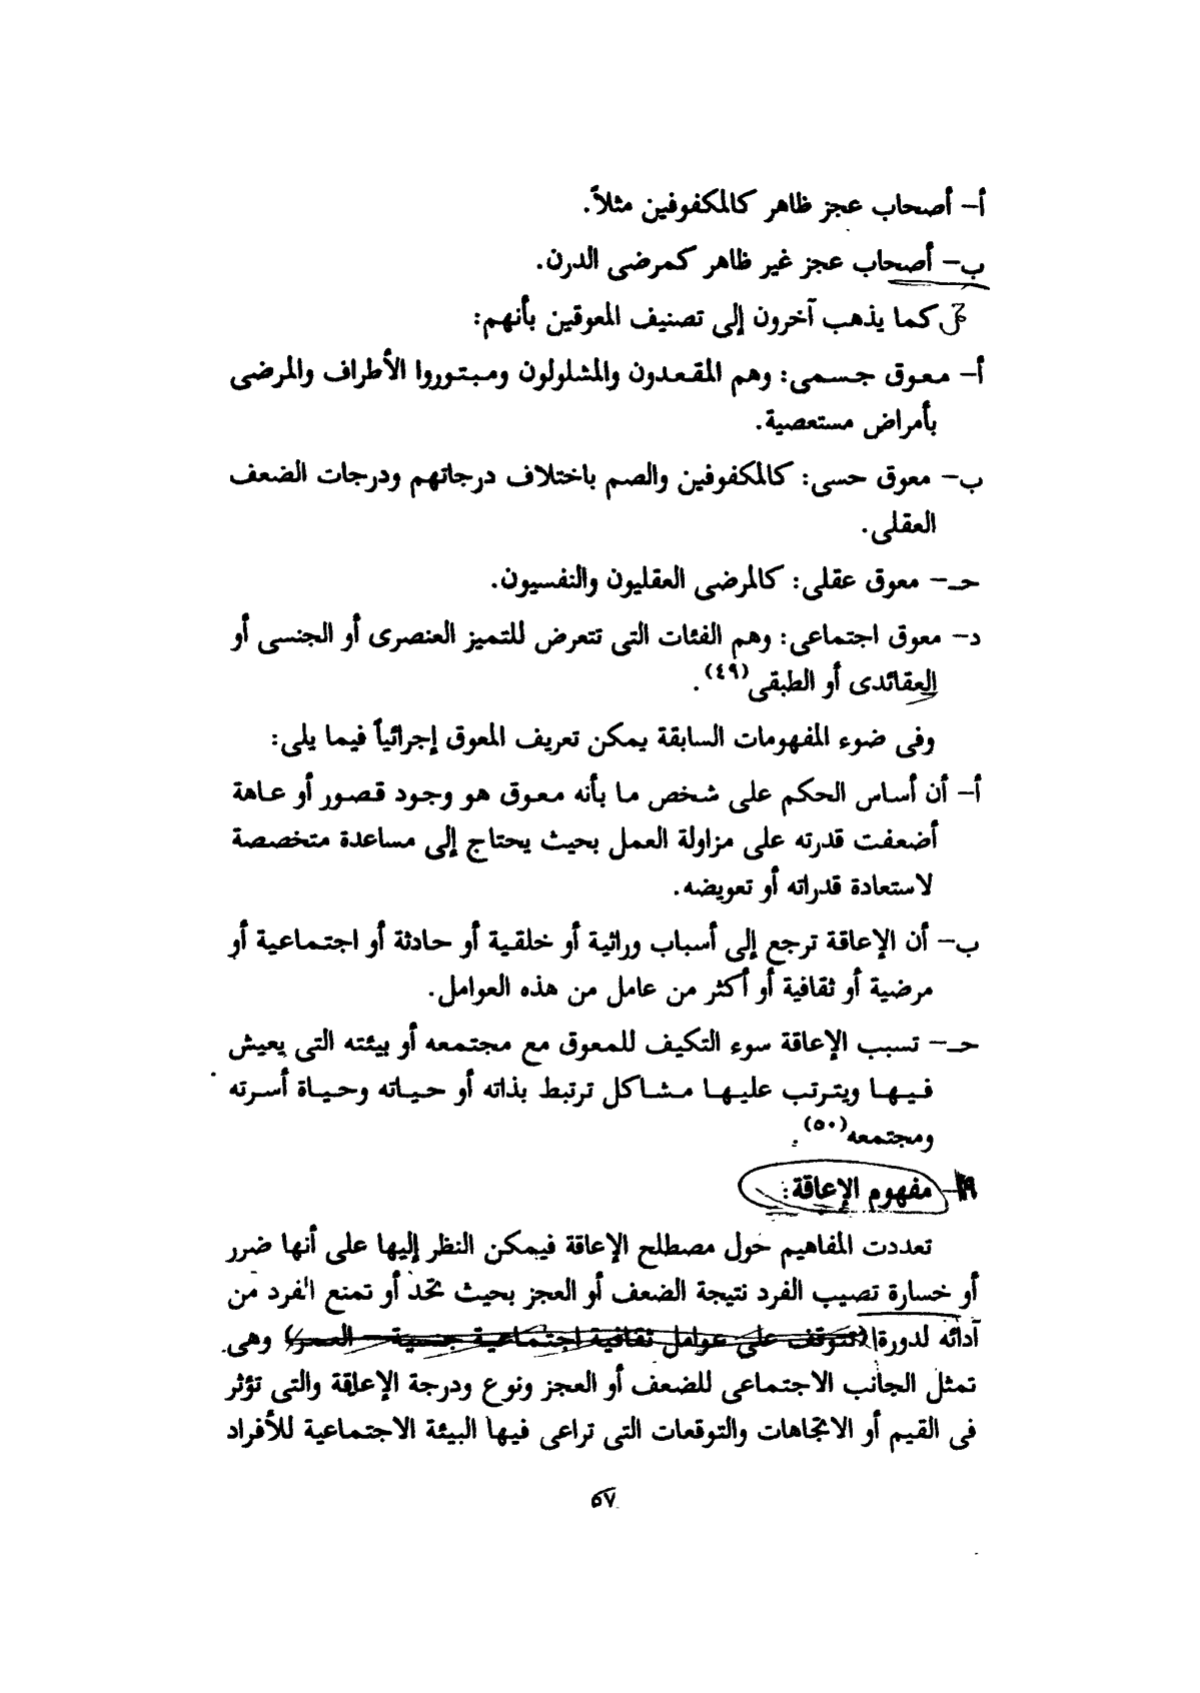 أ- أصحاب عجز ظاهر كالمكفوفين مثلاً.
ب- أصحاب عجز غير ظاهر كمرضى الدرن.
كما يذهب آخرون إلى تصنيف المعوقين بأنهم:
أ- معوق جسمى: وهم المقعدون والمشلولون ومبتوروا الأطراف والمرضى
بأمراض مستعصية.
ب- معوق حسى: كالمكفوفين والصم باختلاف درجاتهم ودرجات الضعف
العقلى.
حـ- معوق عقلى: كالمرضى العقليون والنفسيون.
د- معوق اجتماعى: وهم الفئات التى تتعرض للتميز العنصرى أو الجنسى أو
العقائدى أو الطبقى(٤٩).
وفى ضوء المفهومات السابقة يمكن تعريف المعوق إجرائياً فيما يلى:
أ- أن أساس الحكم على شخص ما بأنه معوق هو وجود قصور أو عاهة
أضعفت قدرته على مزاولة العمل بحيث يحتاج إلى مساعدة متخصصة
لاستعادة قدراته أو تعويضه.
ب- أن الإعاقة ترجع إلى أسباب وراثية أو خلقية أو حادثة أو اجتماعية أو
مرضية أو ثقافية أو أكثر من عامل من هذه العوامل.
حـ- تسبب الإعاقة سوء التكيف للمعوق مع مجتمعه أو بيئته التى يعيش
فيها ويترتب عليها مشاكل ترتبط بذاته أو حياته وحياة أسرته
ومجتمعه(٥٠).
٩- مفهوم الإعاقة:
تعددت المفاهيم حول مصطلح الإعاقة فيمكن النظر إليها على أنها ضرر
أو خسارة تصيب الفرد نتيجة الضعف أو العجز بحيث تحد أو تمنع الفرد من
آدائه لدورة (تتوقف على عوامل ثقافية اجتماعية جنسية - العمر) وهى
تمثل الجانب الاجتماعى للضعف أو العجز ونوع ودرجة الإعاقة والتى تؤثر
فى القيم أو الاتجاهات والتوقعات التى تراعى فيها البيئة الاجتماعية للأفراد
٥٧